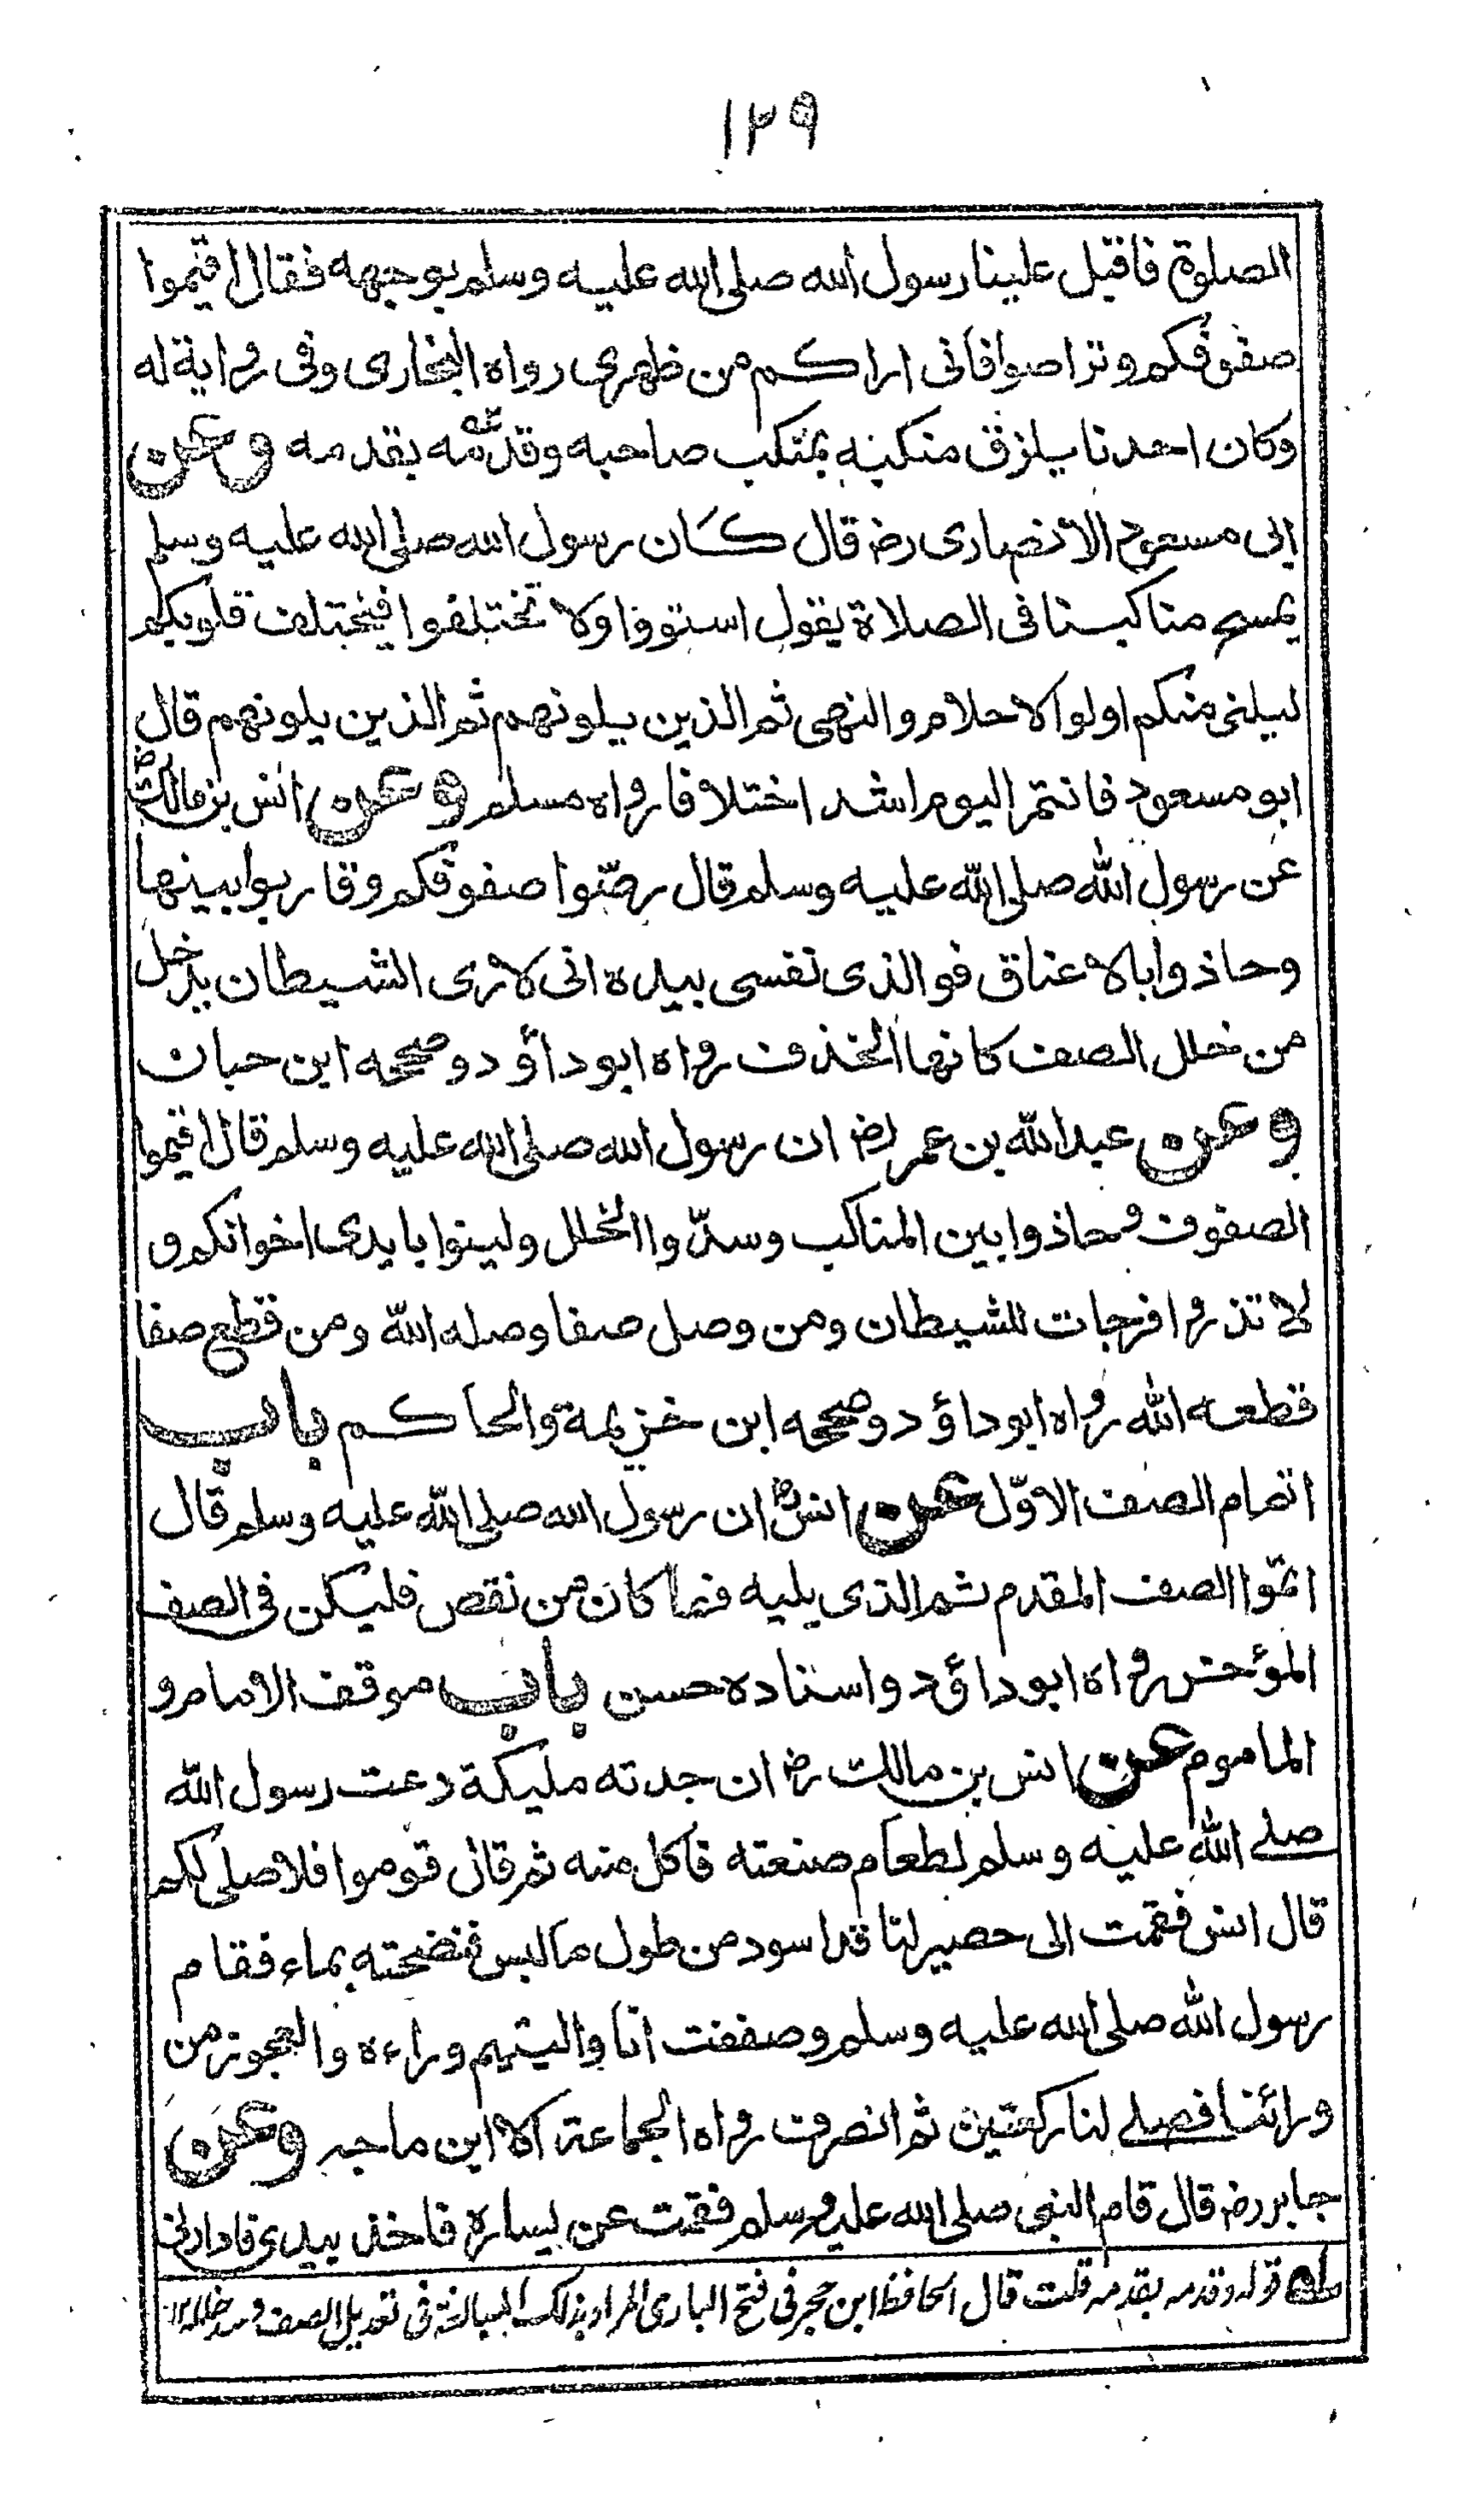 ۱۲۹
الصلوة فاقبل علينا رسول الله صلى الله عليه وسلم بوجهه فقال اقيموا
صفوفكم وتراصوا فانى اراكم من ظهرى رواه البخارى وفى رواية له
وكان احدنا يلزق منكبه بمنكب صاحبه وقدمه بقدمه وعن
ابى مسعود الانصارى رض قال كان رسول الله صلى الله عليه وسلم
يمسح مناكبنا فى الصلاة يقول استووا ولا تختلفوا فيختلف قلوبكم
ليلنى منكم اولوا الاحلام والنهى ثم الذين يلونهم ثم الذين يلونهم قال
ابو مسعود فانتم اليوم اشد اختلافا رواه مسلم وعن انس بن مالك رض
عن رسول الله صلى الله عليه وسلم قال رصّوا صفوفكم وقاربوا بينها
وحاذوا بالاعناق فوالذى نفسى بيده انى لارى الشيطان يدخل
من خلل الصف كانها الخذف رواه ابوداؤد وصححه ابن حبان
وعن عبدالله بن عمر رض ان رسول الله صلى الله عليه وسلم قال اقيموا
الصفوف وحاذوا بين المناكب وسدّوا الخلل ولينوا بايدى اخوانكم و
لا تذروا فرجات للشيطان ومن وصل صفا وصله الله ومن قطع صفا
قطعه الله رواه ابوداؤد وصححه ابن خزيمة والحاكم باب
اتمام الصف الاوّل عن انس رض ان رسول الله صلى الله عليه وسلم قال
اتموا الصف المقدم ثم الذى يليه فما كان من نقص فليكن فى الصف
المؤخر رواه ابوداؤد واسناده حسن باب موقف الامام و
الماموم عن انس بن مالك رض ان جدته مليكة دعت رسول الله
صلے الله عليه وسلم لطعام صنعته فاكل منه ثم قال قوموا فلاصلى لكم
قال انس فقمت الى حصير لنا قد اسود من طول ما لبس فنضحته بماء فقام
رسول الله صلى الله عليه وسلم وصففت انا واليتيم وراءه والعجوز من
ورائنا فصلے لنا ركعتين ثم انصرف رواه الجماعة الا ابن ماجه وعن
جابر رض قال قام النبى صلى الله عليه وسلم فقمت عن يساره فاخذ بيدى فادارنى
له قوله وقدمه بقدمه قلت قال الحافظ ابن حجر فى فتح البارى المراد بذلك المبالغة فى تعديل الصف وسد خلله ۱۲